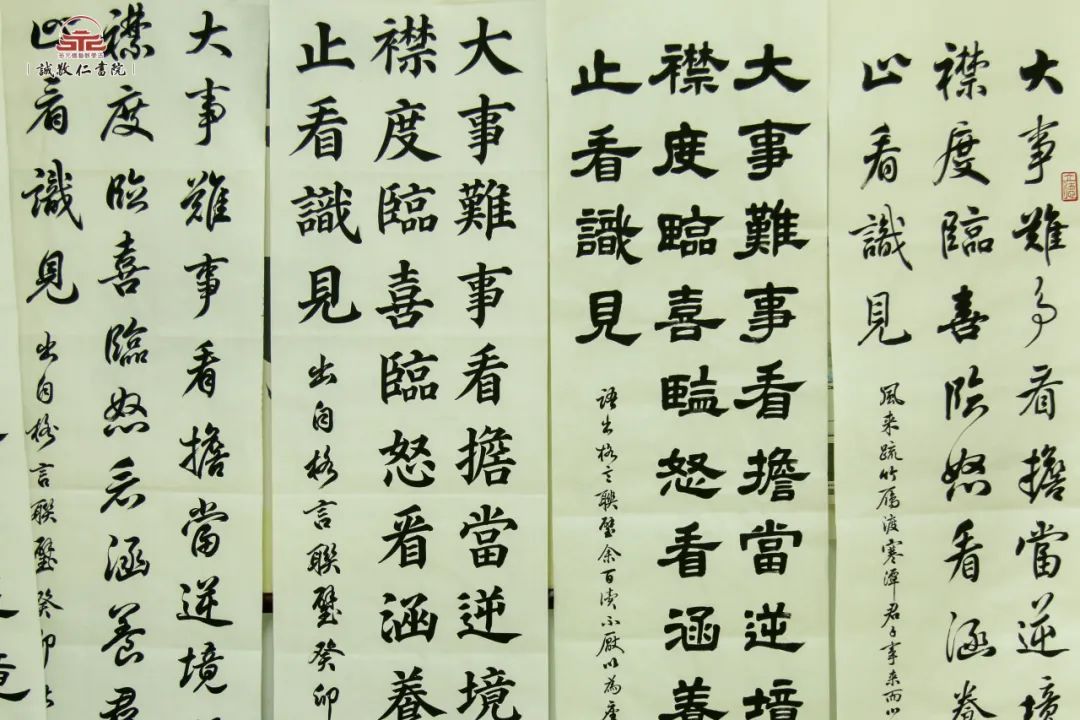 誠敬仁書院
大事難事看擔當逆境
襟度臨喜臨怒看涵養
止看識見
風來疏竹雁渡寒潭君子事來而心
大事難事看擔當逆境
襟度臨喜臨怒看涵養
止看識見
語出格言聯璧余百讀不厭以為座
大事難事看擔當逆境
襟度臨喜臨怒看涵養
止看識見 出自格言聯璧癸卯
大事難事看擔當逆境
襟度臨喜臨怒看涵養群
止看識見 出自格言聯璧癸卯